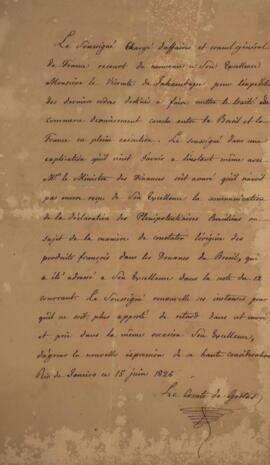 Le Soussigné Chargé d'affaires et consul général
de France recourt de nouveau à Son Excellence
Monsieur le Vicomte de pour l'expédition
des derniers ordres destinés à faire mettre le traité de
commerce dernièrement conclu entre le Brésil et la
France en pleine exécution. Le soussigné dans une
explication qu'il vient d'avoir à l'instant même avec
Mr. le Ministre des Finances s'est assuré qu'il n'avait
pas encore reçu de Son Excellence la communication
de la déclaration des Plénipotentiaires Brésiliens au
sujet de la manière de constater l'origine des
produits français dans les Douanes du Brésil, qui
a été adressé à Son Excellence dans la note du 12
courant. Le Soussigné renouvelle ses instances pour
qu'il ne soit plus apporté de retard dans cet envoi
et prie dans la même occasion Son Excellence,
d'agréer la nouvelle expression de sa haute considération
Rio de Janeiro ce 15 juin 1826
Le Comte de Gestas